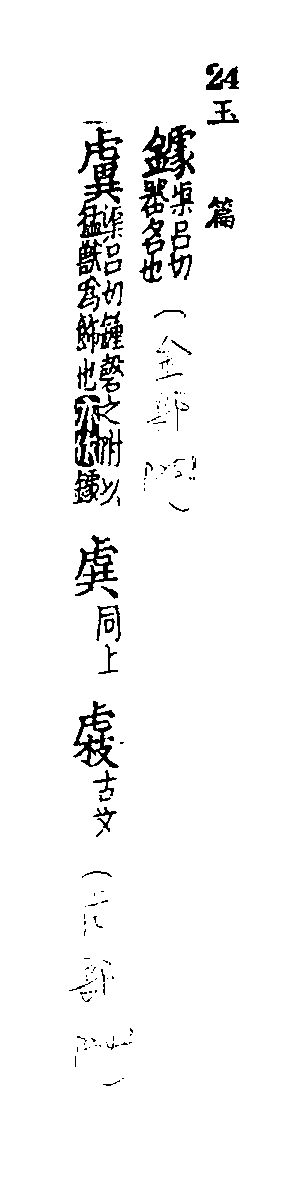 24玉篇
鐻渠呂切器名也(金部
虡渠呂切鐘磬之柎以猛獸為飾也亦作鐻 虡同上 古文(虍部